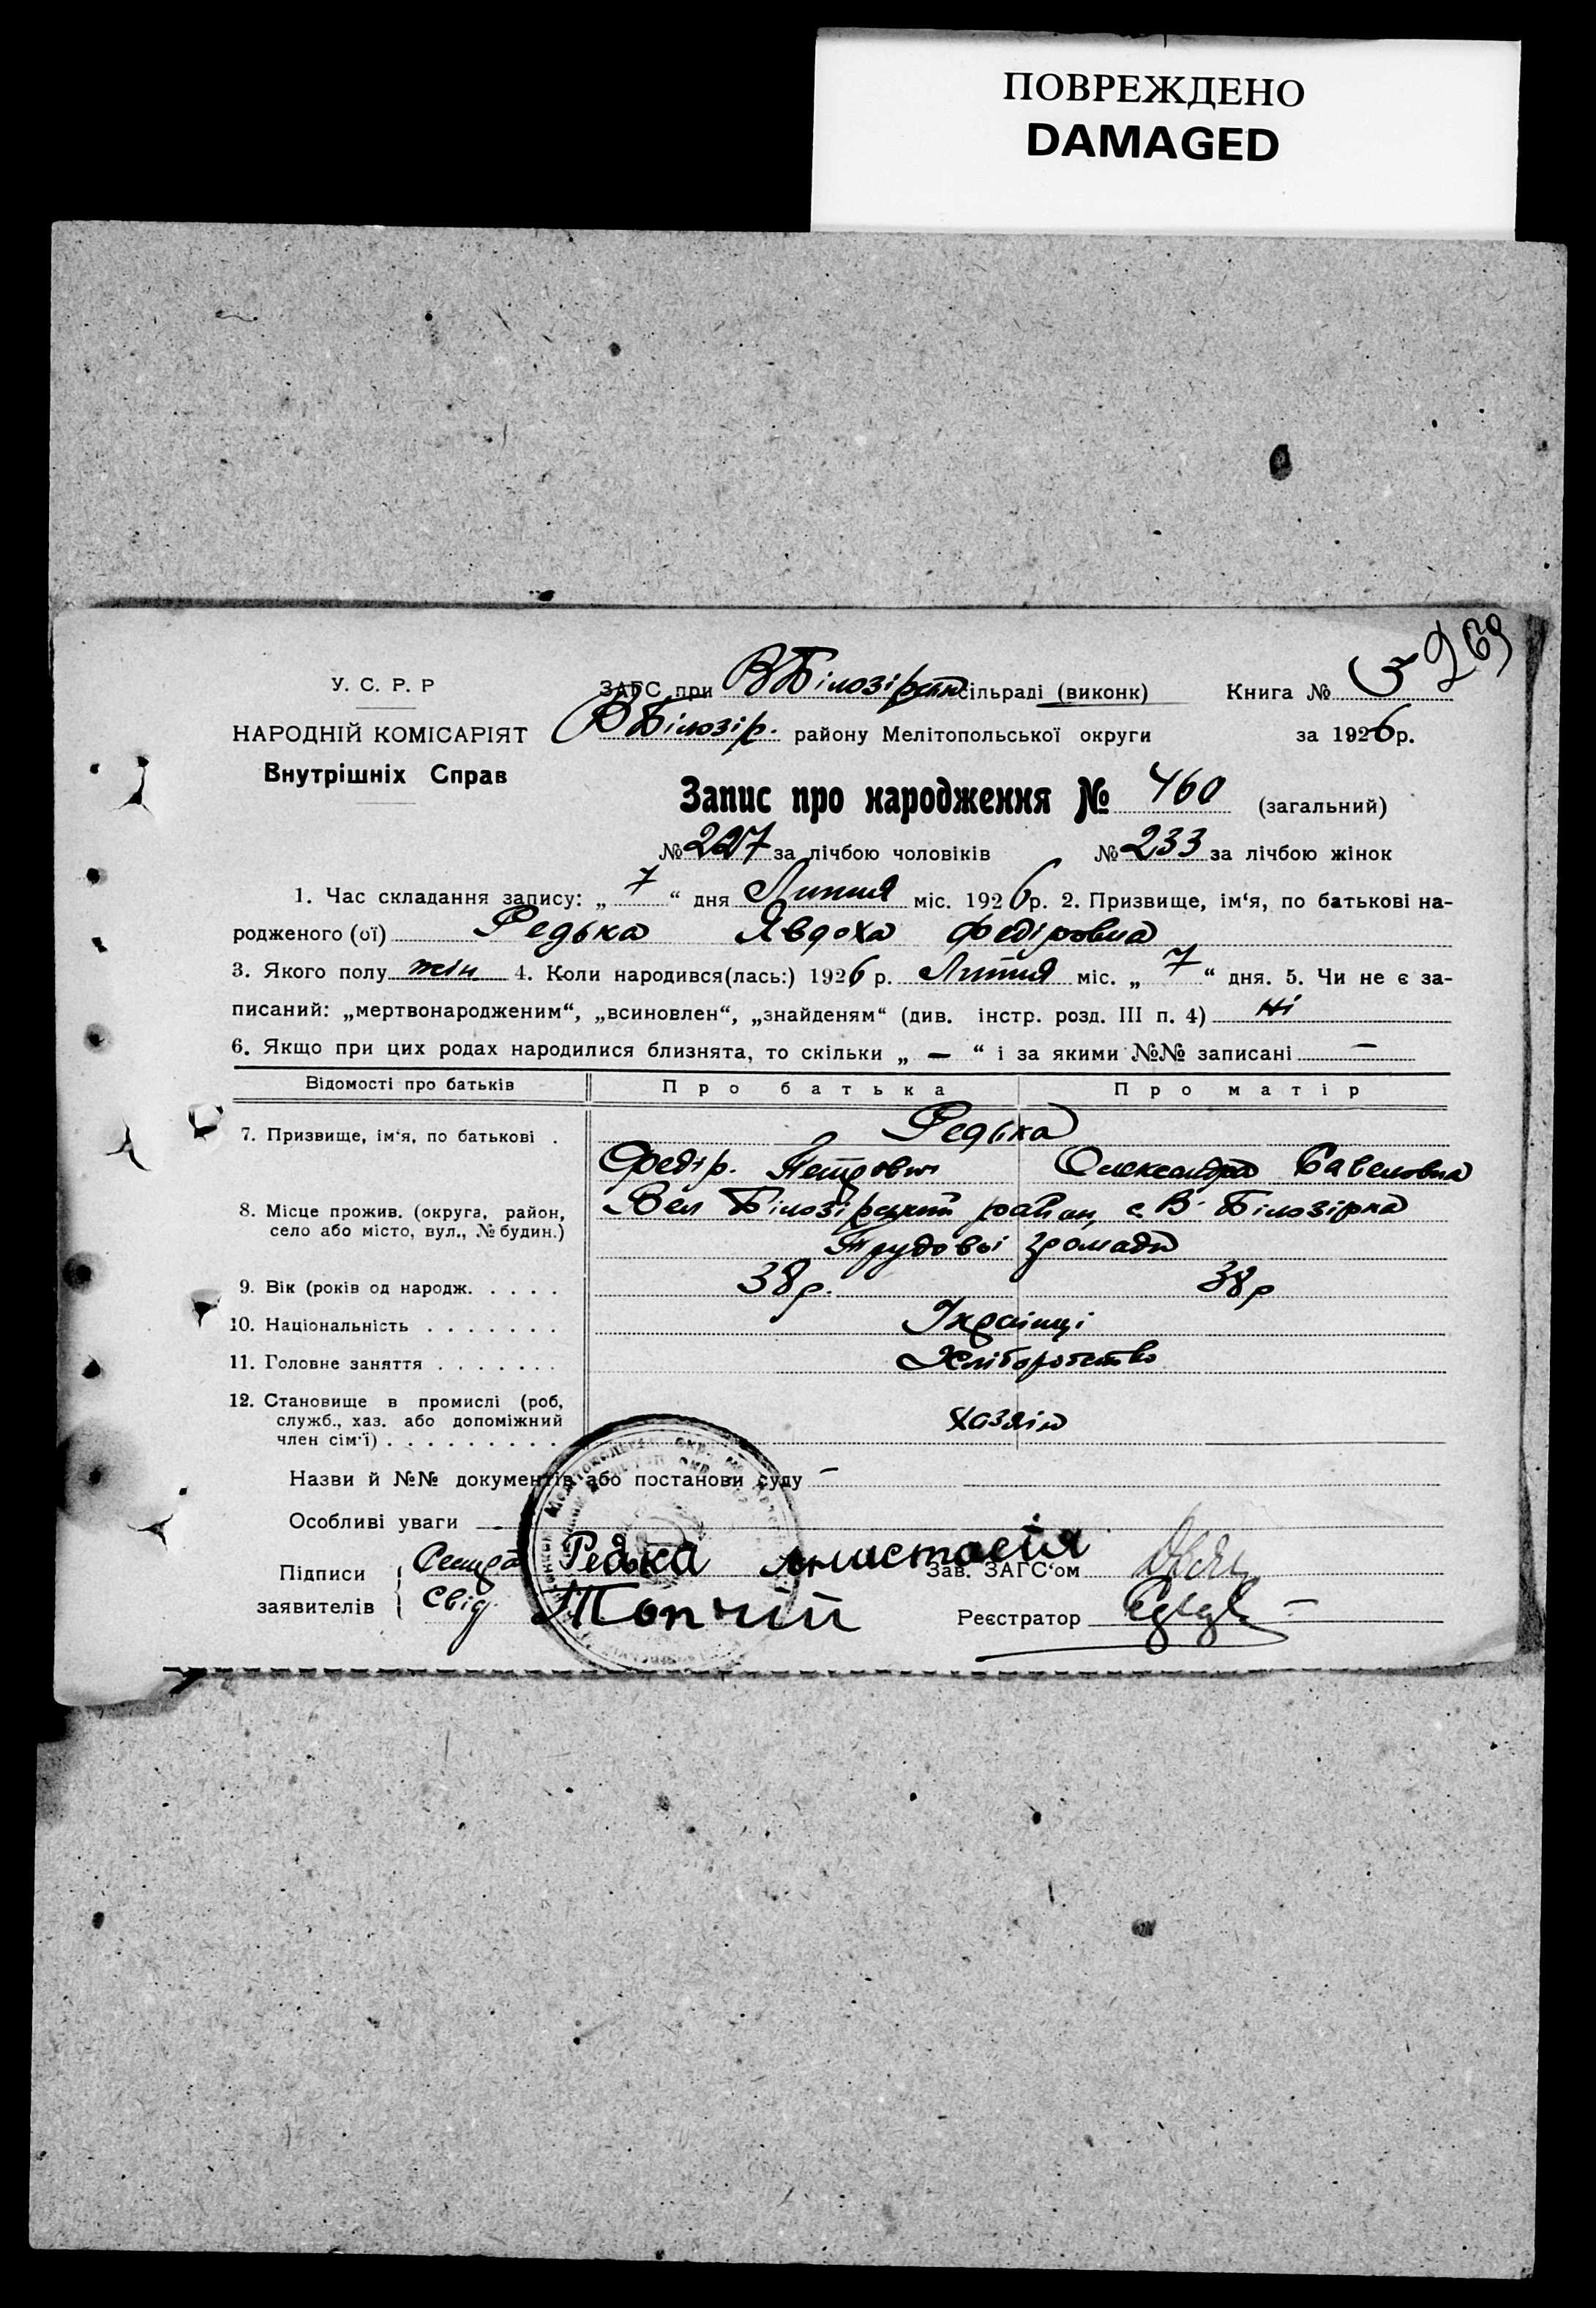 ПОВРЕЖДЕНО
DAMAGED
269
У. С. Р. Р
ЗАГС при В Білозірській сільраді (виконк) Книга № 3
НАРОДНІЙ КОМІСАРІЯТ
В Білозір. району Мелітопольської округи за 1926 р.
Внутрішніх Справ
Запис про народження № 460 (загальний)
№ 227 за лічбою чоловіків № 233 за лічбою жінок
1. Час складання запису: „ 7 “ дня Липня міс. 1926 р. 2. Призвище, ім‘я, по батькові на-
родженого (ої) Редька Явдоха Федіровна
3. Якого полу жін. 4. Коли народився(лась:) 1926 р. Липня міс. „ 7 “ дня. 5. Чи не є за-
писаний: „мертвонародженим“, „всиновлен“, „знайденям“ (див. інстр. розд. III п. 4) Ні
6. Якщо при цих родах народилися близнята, то скільки „ — “ і за якими №№ записані —
Відомості про батьків Про батька Про матір
7. Призвище, ім‘я, по батькові . Редька
Федір. Петрович Олександра Савеловна
8. Місце прожив. (округа, район, село або місто, вул., № будин.) Вел Білозірський район, с. В. Білозірка
Трудової громади
9. Вік (років од народж. . . . . 38 р. 38 р
10. Національність . . . . . . . Українці
11. Головне заняття . . . . . . . Хліборобство
12. Становище в промислі (роб,
служб., хаз. або допоміжний
член сім‘ї) . . . . . . . . . . хозяін
Назви й №№ документів або постанови суду —
Особливі уваги —
Підписи заявителів Сестра Редька Анистасія Зав. ЗАГС‘ом
Свід. Топчий Реєстратор